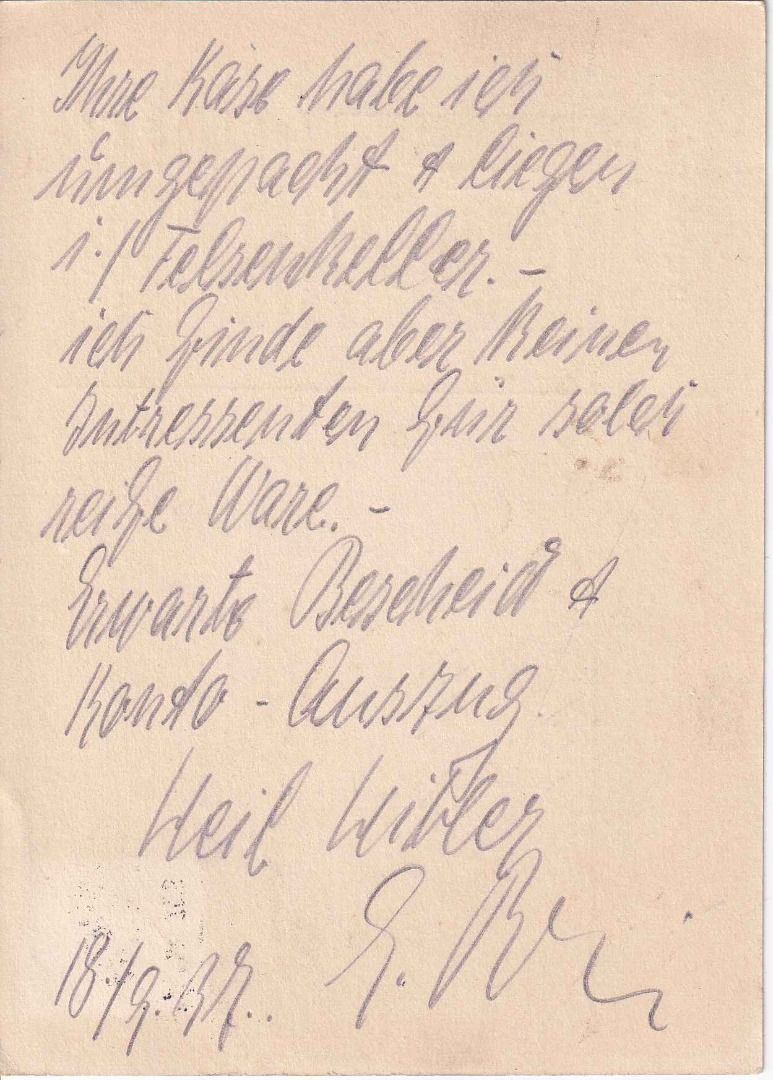 Ihre Käse habe ich
umgepackt & liegen
i./ Felsenkeller. –
ich finde aber keinen
Intressenten für solch
reife Ware. –
Erwarte Bescheid &
Konto - Auszug.
Heil Hitler
E.
18./9.37..